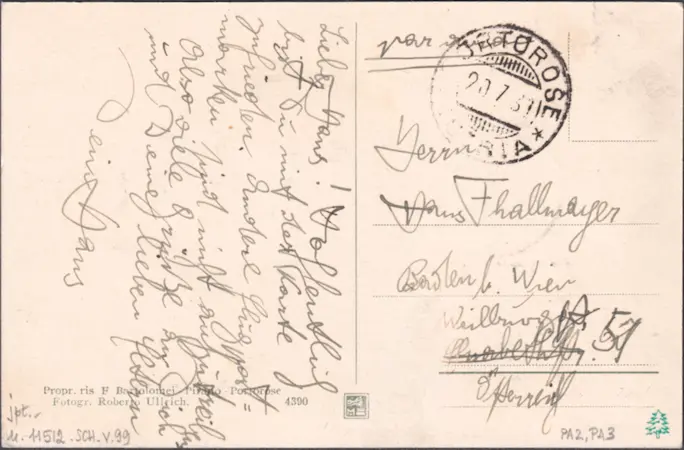 Lieber Hans! Hoffentlich
bist Du mit der Karte
zufrieden. Andere Flugpost=
marken sind nicht aufzutreiben
Also viele Grüße an Dich
und Deine lieben Eltern
Dein Hans
par avion
PORTOROSE
20.7.3
ISTRIA ★
Herrn
Hans Thallmayer
Baden b. Wien
Weilburgstr. 57
Österreich
Propr. ris F Bartolomei Pirano - Portorose
Fotogr. Roberto Ullrich. 4390
jpt.-
U. 11512 - SCH - V. 99
PA2, PA3